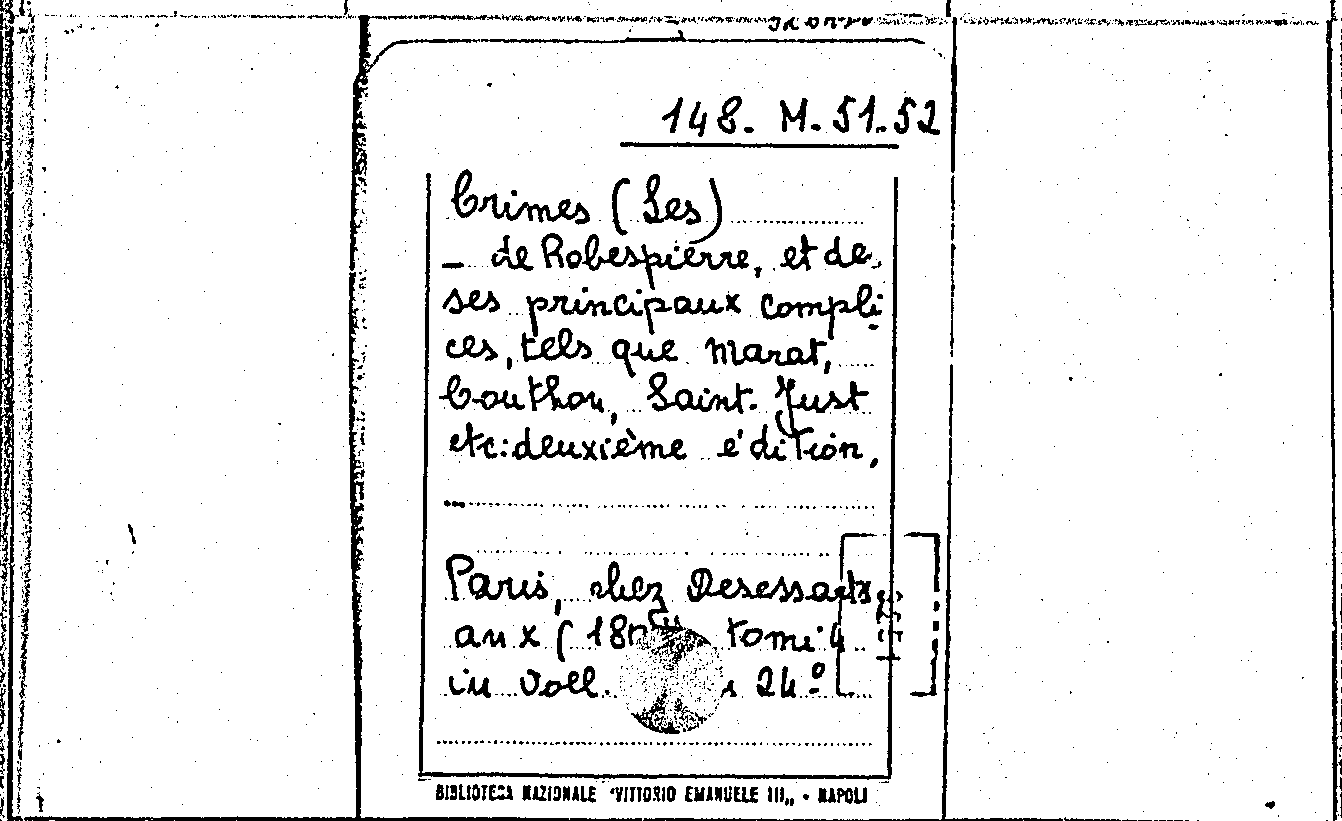 148. M. 51.52
Crimes (Les)
– de Robespierre, et de
ses principaux compli
ces, tels que Marat,
Couthon, Saint. Just
etc: deuxième édition,
...
Paris, chez Desessarts,
an x ( tomi 4
in voll. 24º
BIBLIOTECA NAZIONALE "VITTORIO EMANUELE III„ - NAPOLI